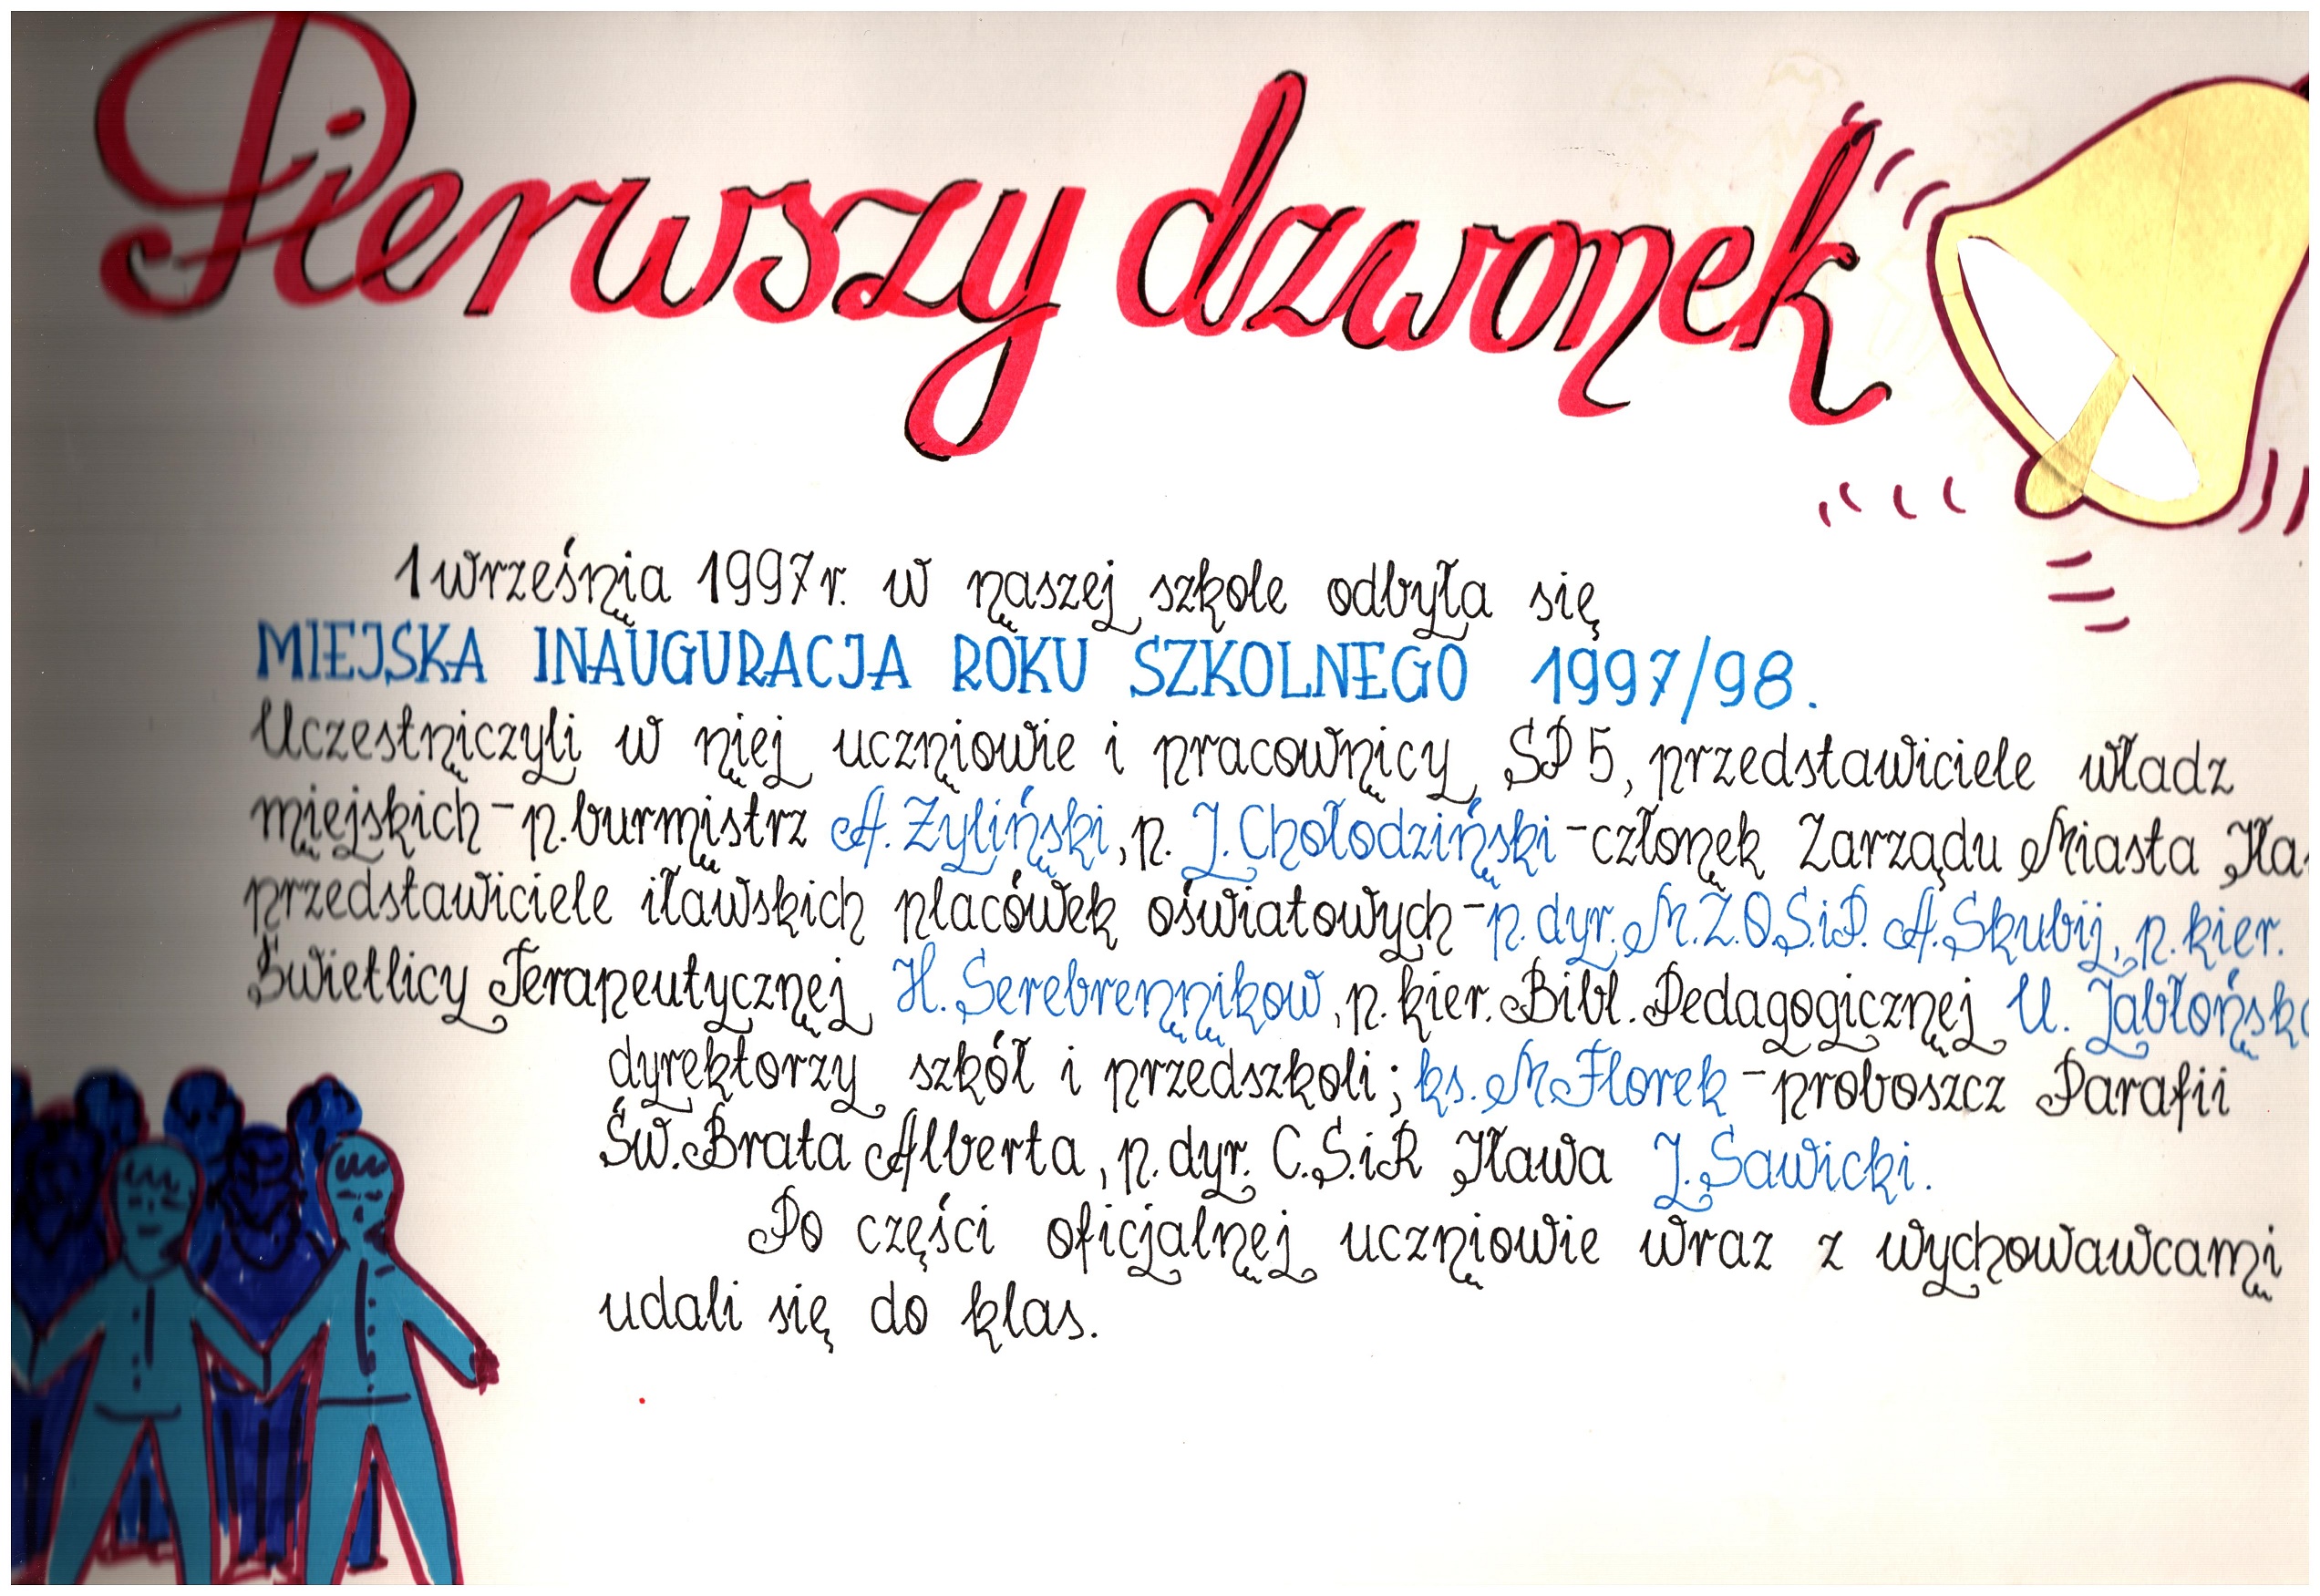 Pierwszy dzwonek
1 września 1997r. w naszej szkole odbyła się
MIEJSKA INAUGURACJA ROKU SZKOLNEGO 1997/98.
Uczestniczyli w niej uczniowie i pracownicy SP 5, przedstawiciele władz
miejskich - p. burmistrz A. Żyliński, p. J. Chołodziński - członek Zarządu Miasta Iła
przedstawiciele iławskich placówek oświatowych - p. dyr. M.Z.O.S.iP. A. Skubij, p. kier.
Świetlicy Terapeutycznej H. Serebrennikow, p. kier. Bibl. Pedagogicznej U. Jabłońsk
dyrektorzy szkół i przedszkoli; ks. M Florek - proboszcz Parafii
Św. Brata Alberta, p. dyr. C.S.iR Iława J. Sawicki.
Po części oficjalnej uczniowie wraz z wychowawcami
udali się do klas.